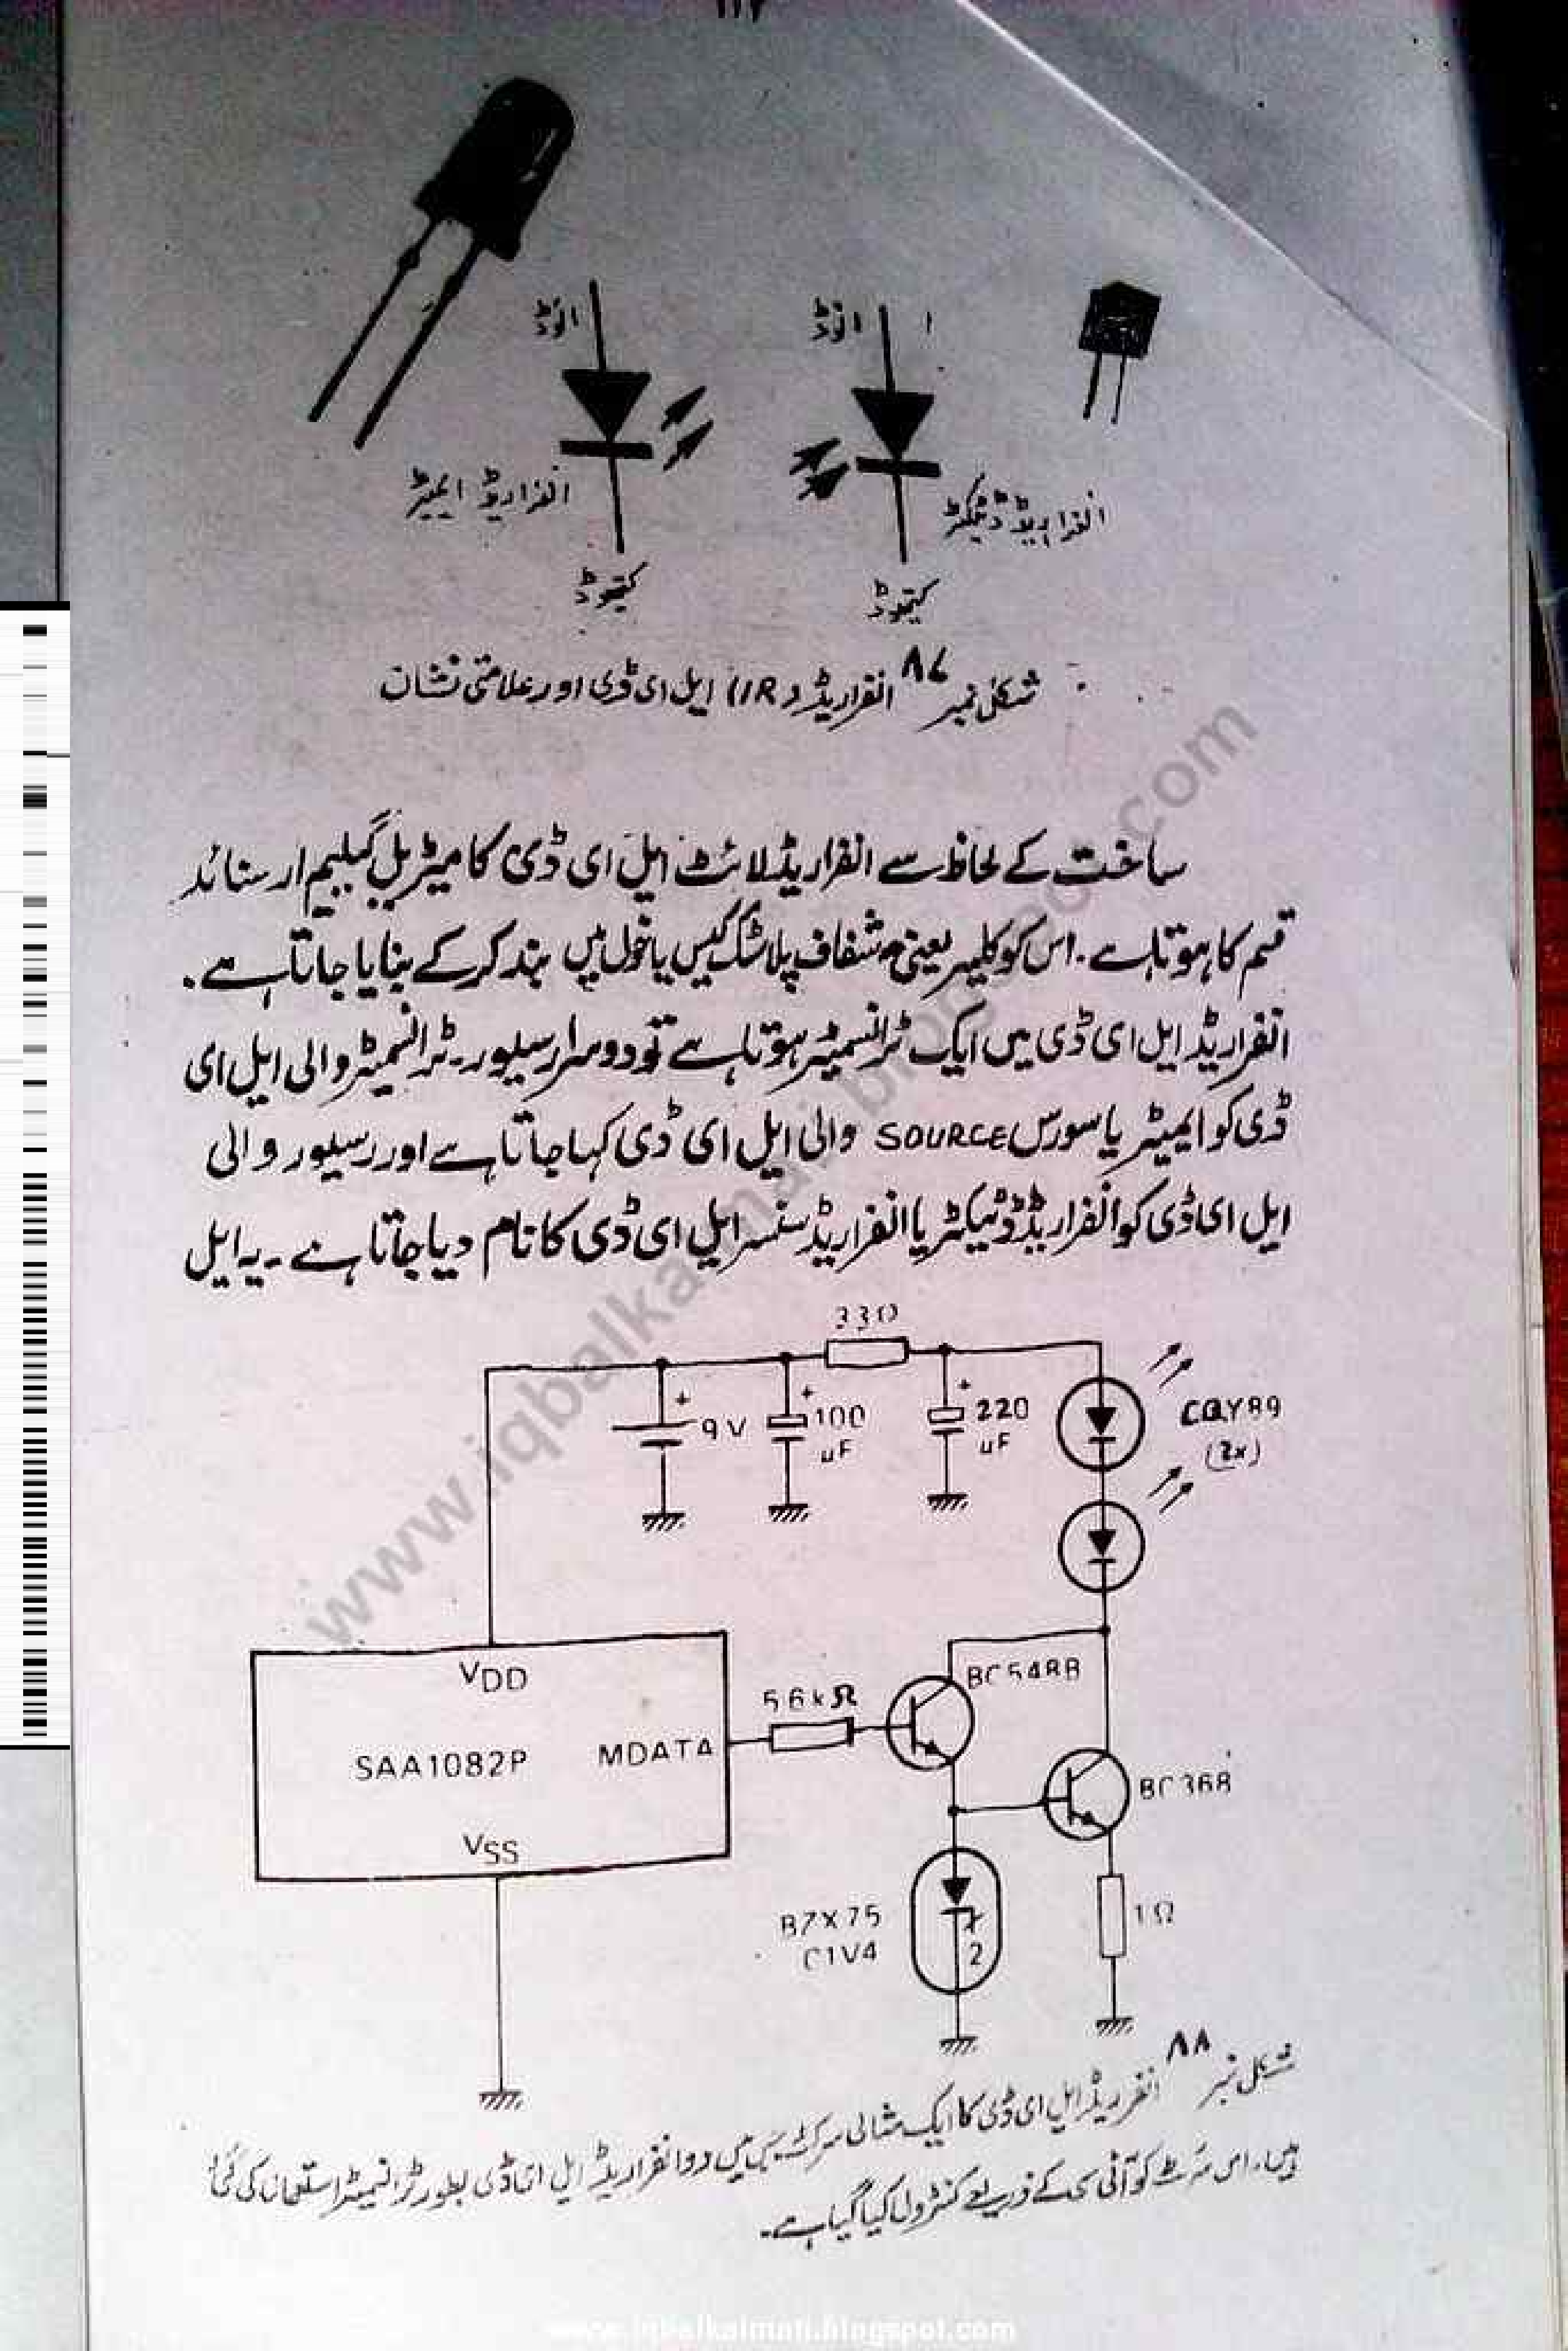 ۱۱۲
انوڈ
انوڈ
انفراریڈ ایمیٹر
انفراریڈ ڈٹیکٹر
کیتھوڈ
کیتھوڈ
شکل نمبر ۸۷ انفراریڈ (IR) ایل ای ڈی اور علامتی نشان
ساخت کے لحاظ سے انفراریڈ لائٹ ایل ای ڈی کا میٹریل گیلیم ارسنائڈ
قسم کا ہوتا ہے۔ اس کو کلیر یعنی شفاف پلاسٹک کیس یا خول میں بند کر کے بنایا جاتا ہے۔
انفراریڈ ایل ای ڈی میں ایک ٹرانسمیٹر ہوتا ہے تو دوسرا رسیور۔ ٹرانسمیٹر والی ایل ای
ڈی کو ایمیٹر یا سورس SOURCE والی ایل ای ڈی کہا جاتا ہے اور رسیور والی
ایل ای ڈی کو انفراریڈ ڈٹیکٹر یا انفراریڈ سنسر ایل ای ڈی کا نام دیا جاتا ہے۔ یہ ایل
33Ω
9V
100
uF
220
uF
CQY89
(2x)
VDD
SAA1082P
MDATA
VSS
56kΩ
BC548B
BC368
BZX75
C1V4
2
1Ω
شکل نمبر ۸۸ انفراریڈ ایل ای ڈی کا ایک مثالی سرکٹ جس میں دو انفراریڈ ایل ای ڈی بطور ٹرانسمیٹر استعمال کی گئی
ہیں۔ اس سرکٹ کو آئی سی کے ذریعے کنٹرول کیا گیا ہے۔
www.iqbalkalmati.blogspot.com
www.iqbalkalmati.blogspot.com